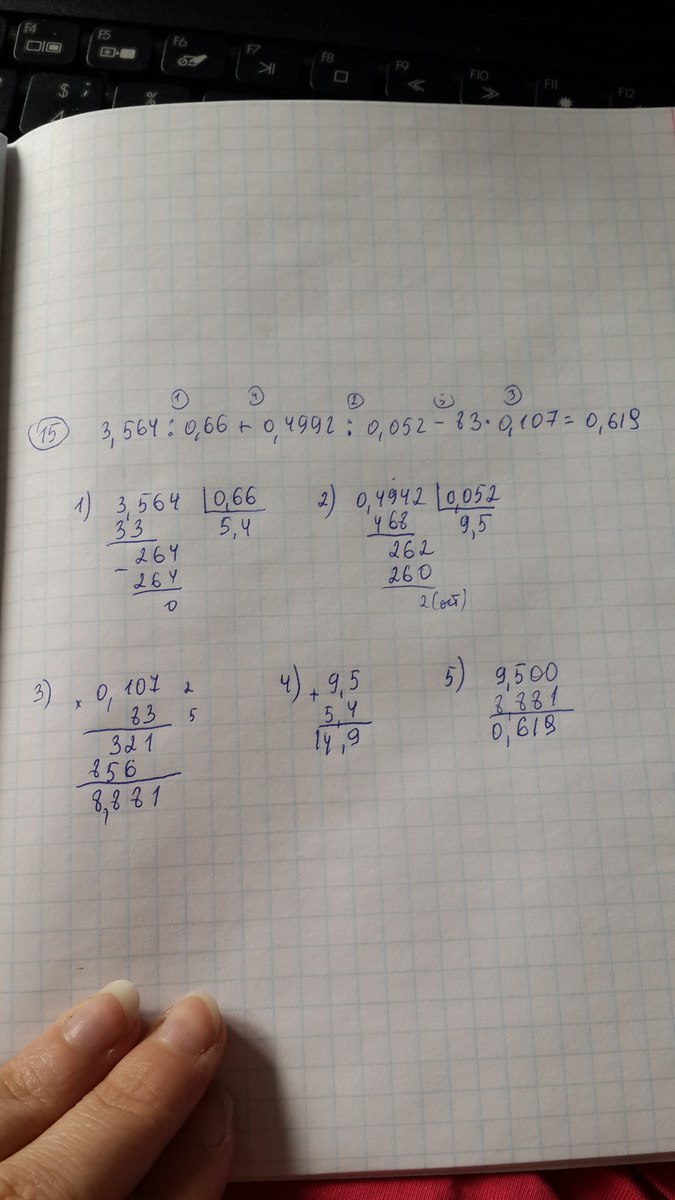 F4 F5 F6 F7 F8 F9 F10 F11 F12
$ ; %
4
① ④ ② ⑤ ③
15 3,564 : 0,66 + 0,4992 : 0,052 - 83 · 0,107 = 0,619
1) 3,564 0,66 2) 0,4942 0,052
33 5,4 468 9,5
- 264 262
264 260
0 2(ост)
3) × 0,107 2 4) + 9,5 5) 9,500
83 5 5,4 8,881
321 14,9 0,619
856
8,881